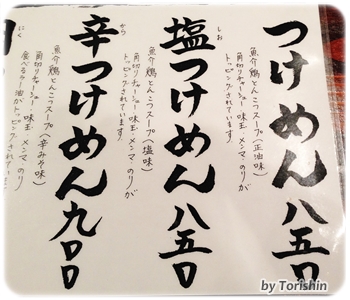 つけめん八五〇
魚介鶏とんこつスープ(正油味)
角切りチャーシュー 味玉 メンマ のりが
トッピングされています
しお
塩つけめん八五〇
魚介鶏とんこつスープ(塩味)
角切りチャーシュー 味玉 メンマ のりが
トッピングされています
から
辛つけめん九〇〇
魚介鶏とんこつスープ(辛みそ味)
角切りチャーシュー 味玉 メンマ のり
食べるラー油がトッピングされています
にく
by Torishin